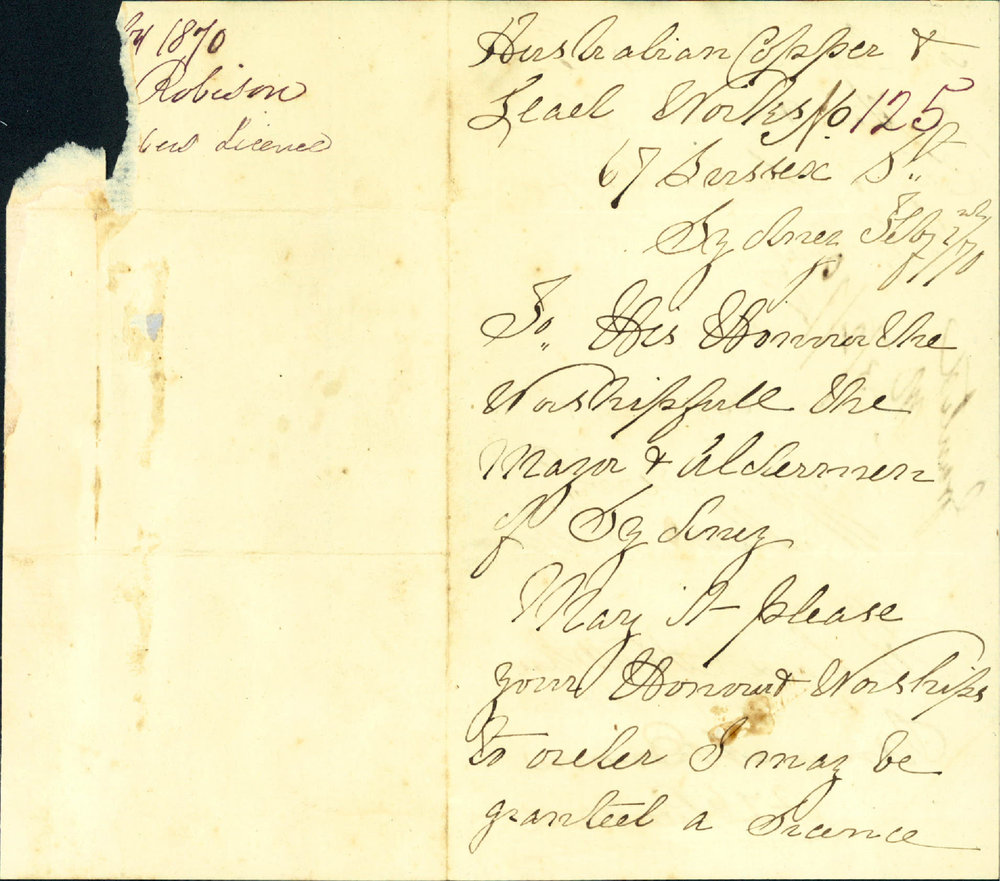 1870
Robison
Licence
Australian Copper &
Lead Works 125
67 Sussex St
Sydney Feby 2nd/70
To His Honour the
Worshipfull the
Mayor & Aldermen
of Sydney
May It please
your Honour & Worships
to order I may be
granted a Licence